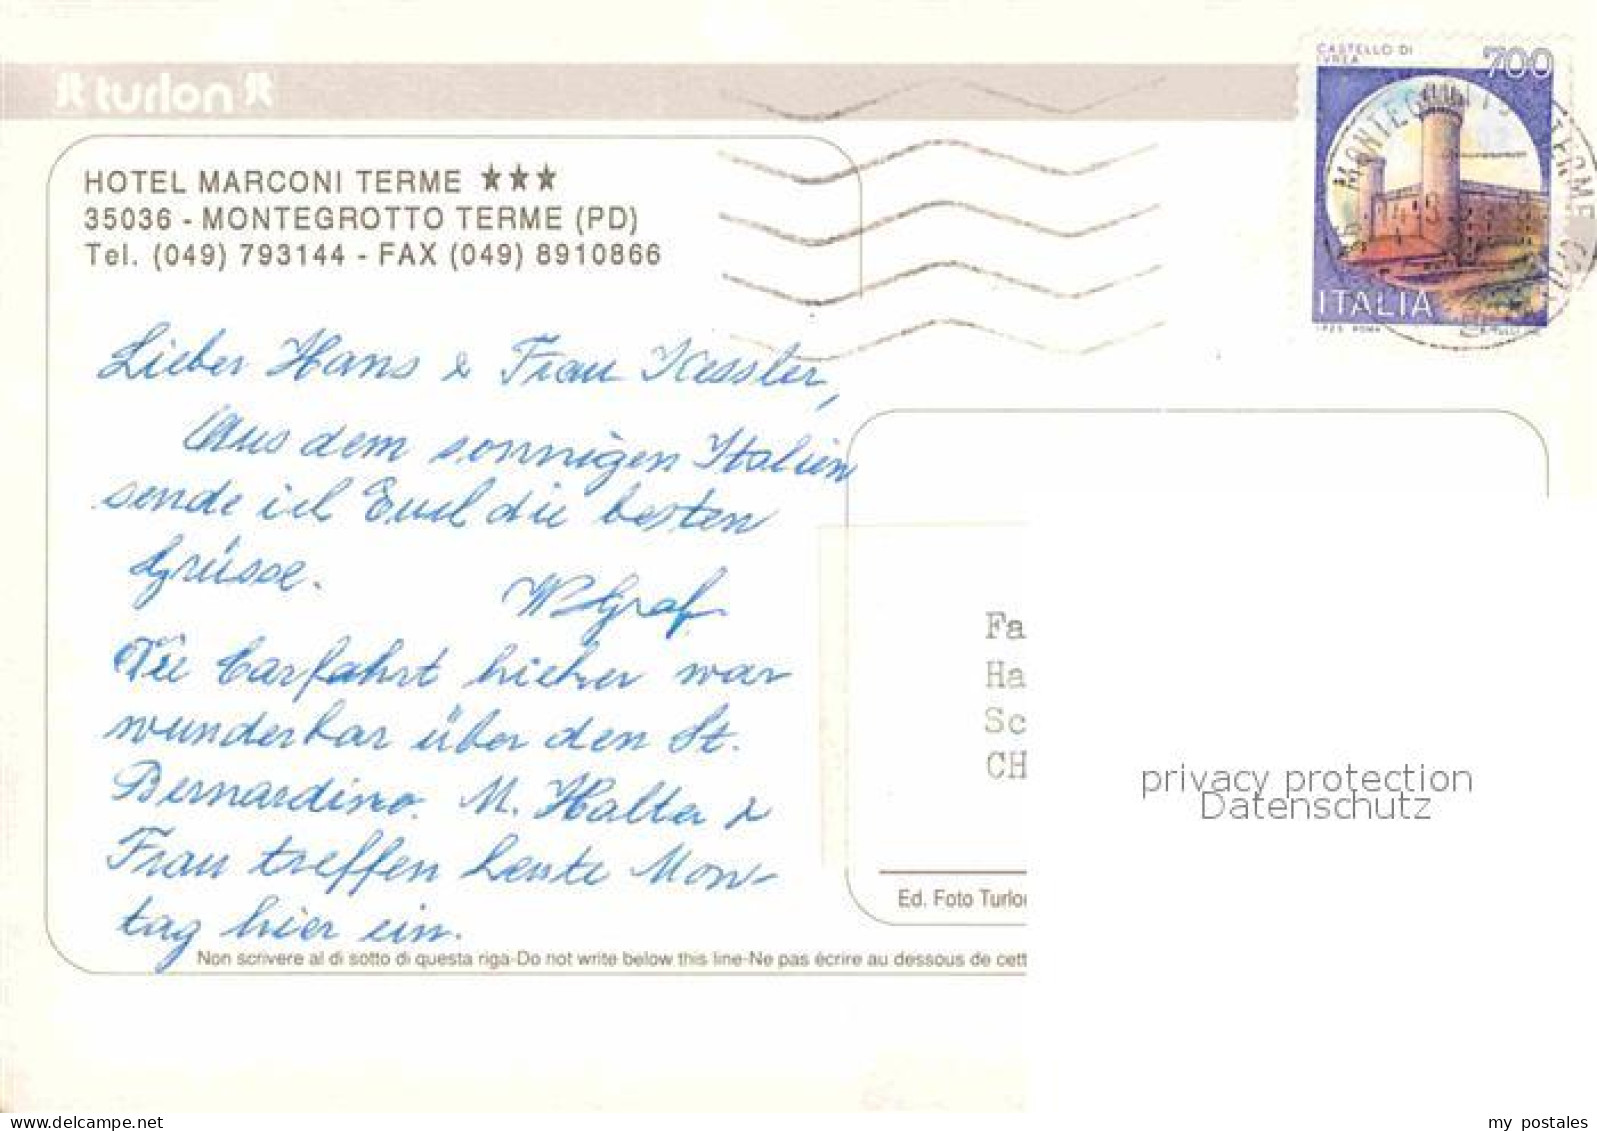 turlon
HOTEL MARCONI TERME ★★★
35036 - MONTEGROTTO TERME (PD)
Tel. (049) 793144 - FAX (049) 8910866
CASTELLO DI
IVREA
700
ITALIA
MONTEGROTTO TERME
Lieber Hans & Frau Kessler,
Aus dem sonnigen Italien
sende ich Euch die besten
Grüsse.
W Graf
Die Carfahrt hieher war
wunderbar über den St.
Bernardino. M. Halter &
Frau treffen heute Mon-
tag hier ein.
Fa
Ha
Sc
CH
privacy protection
Datenschutz
Ed. Foto Turlo
Non scrivere al di sotto di questa riga-Do not write below this line-Ne pas écrire au dessous de cett
delcampe.net
my postales